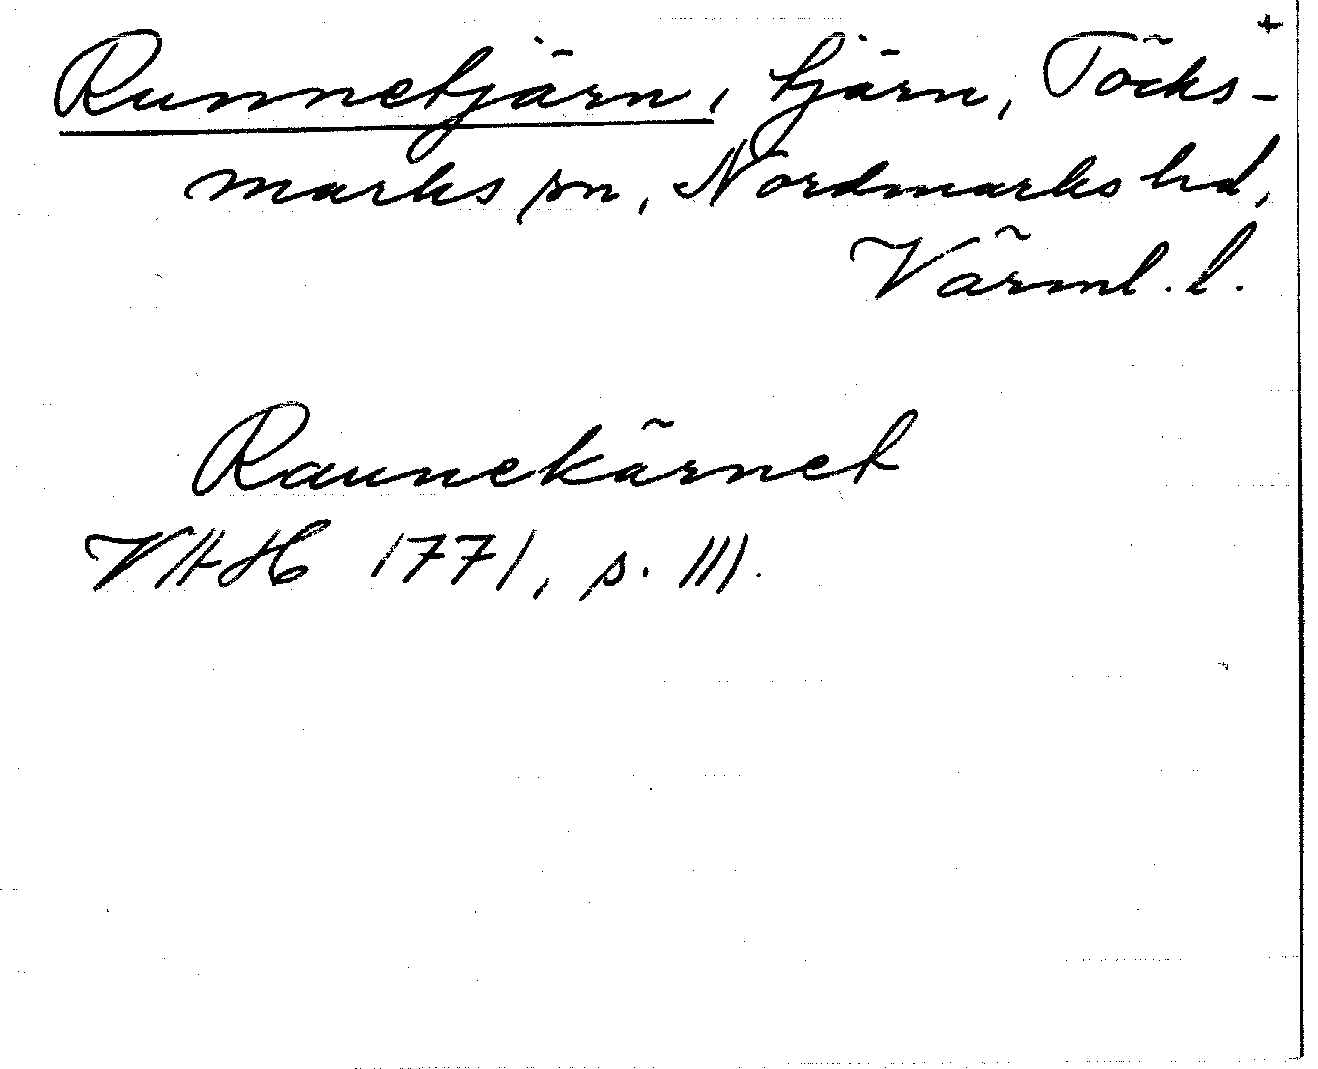 +
Runnetjärn, tjärn, Töcks-
marks sn, Nordmarks hd,
Värml. l.
Raunekärnet
VHH 1771, s. 111.